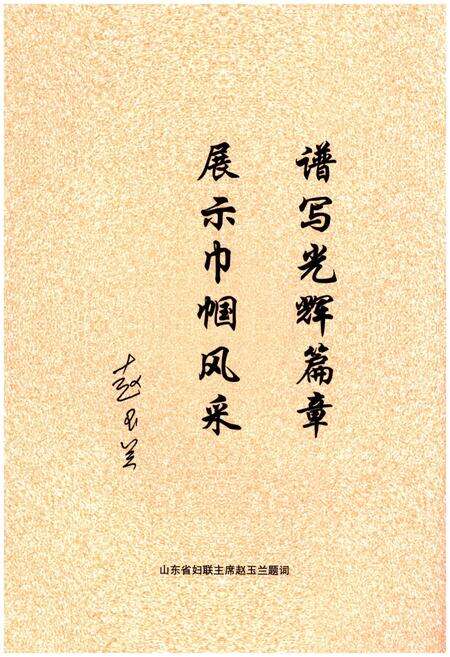 谱写光辉篇章
展示巾帼风采
赵玉兰
山东省妇联主席赵玉兰题词